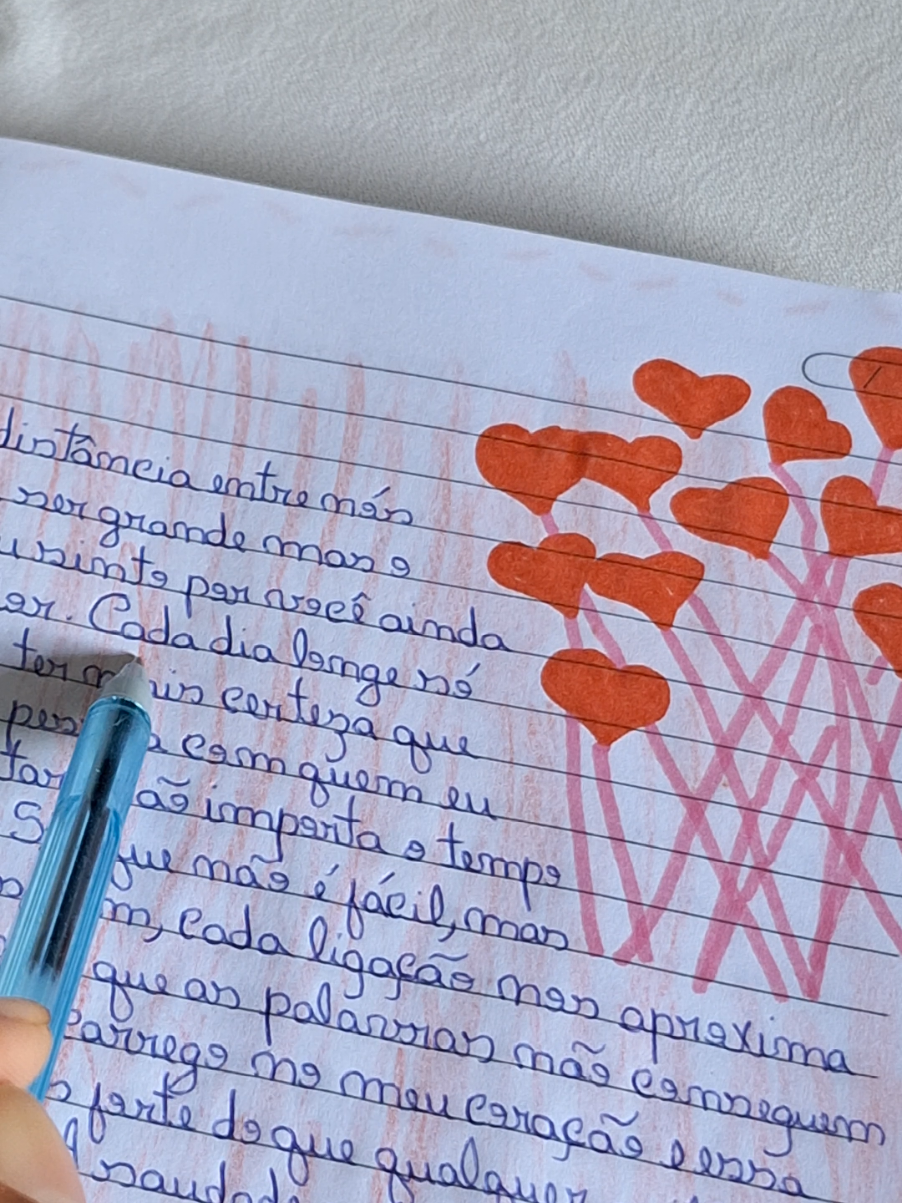 distância entre nós
ser grande mas o
sinto por você ainda
Cada dia longe só
certeza que
com quem eu
não importa o tempo
que não é fácil, mas
cada ligação nos aproxima
que as palavras não conseguem
carrego no meu coração essa
forte do que qualquer
saudade